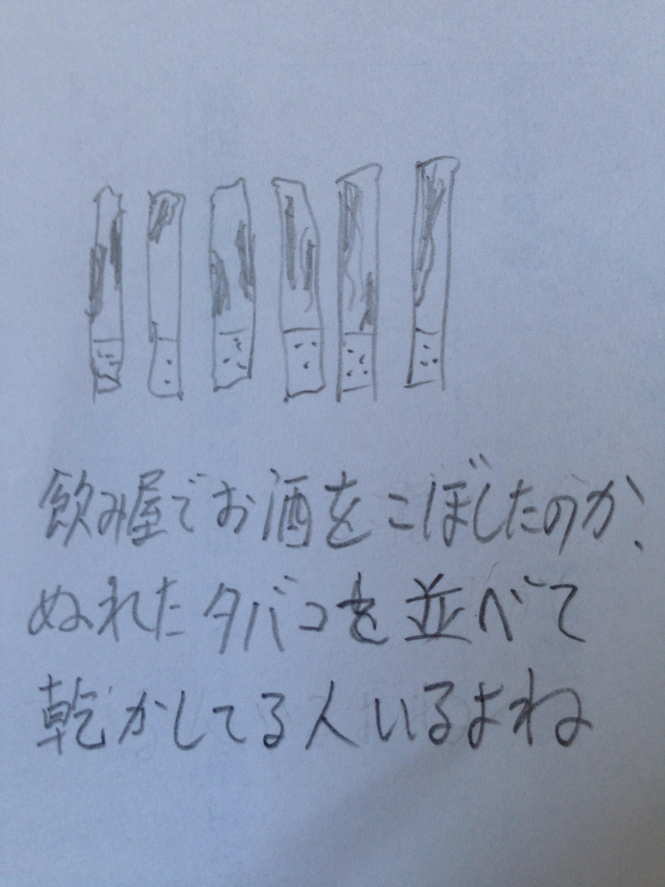 飲み屋でお酒をこぼしたのか、
ぬれたタバコを並べて
乾かしてる人いるよね